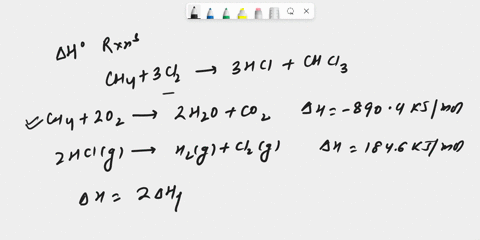 ΔH° Rxnˢ
CH4 + 3Cl2 → 3HCl + CHCl3
CH4 + 2O2 → 2H2O + CO2 ΔH = -890.4 KJ/mol
2HCl(g) → H2(g) + Cl2(g) ΔH = 184.6 KJ/mol
ΔH = 2ΔHf